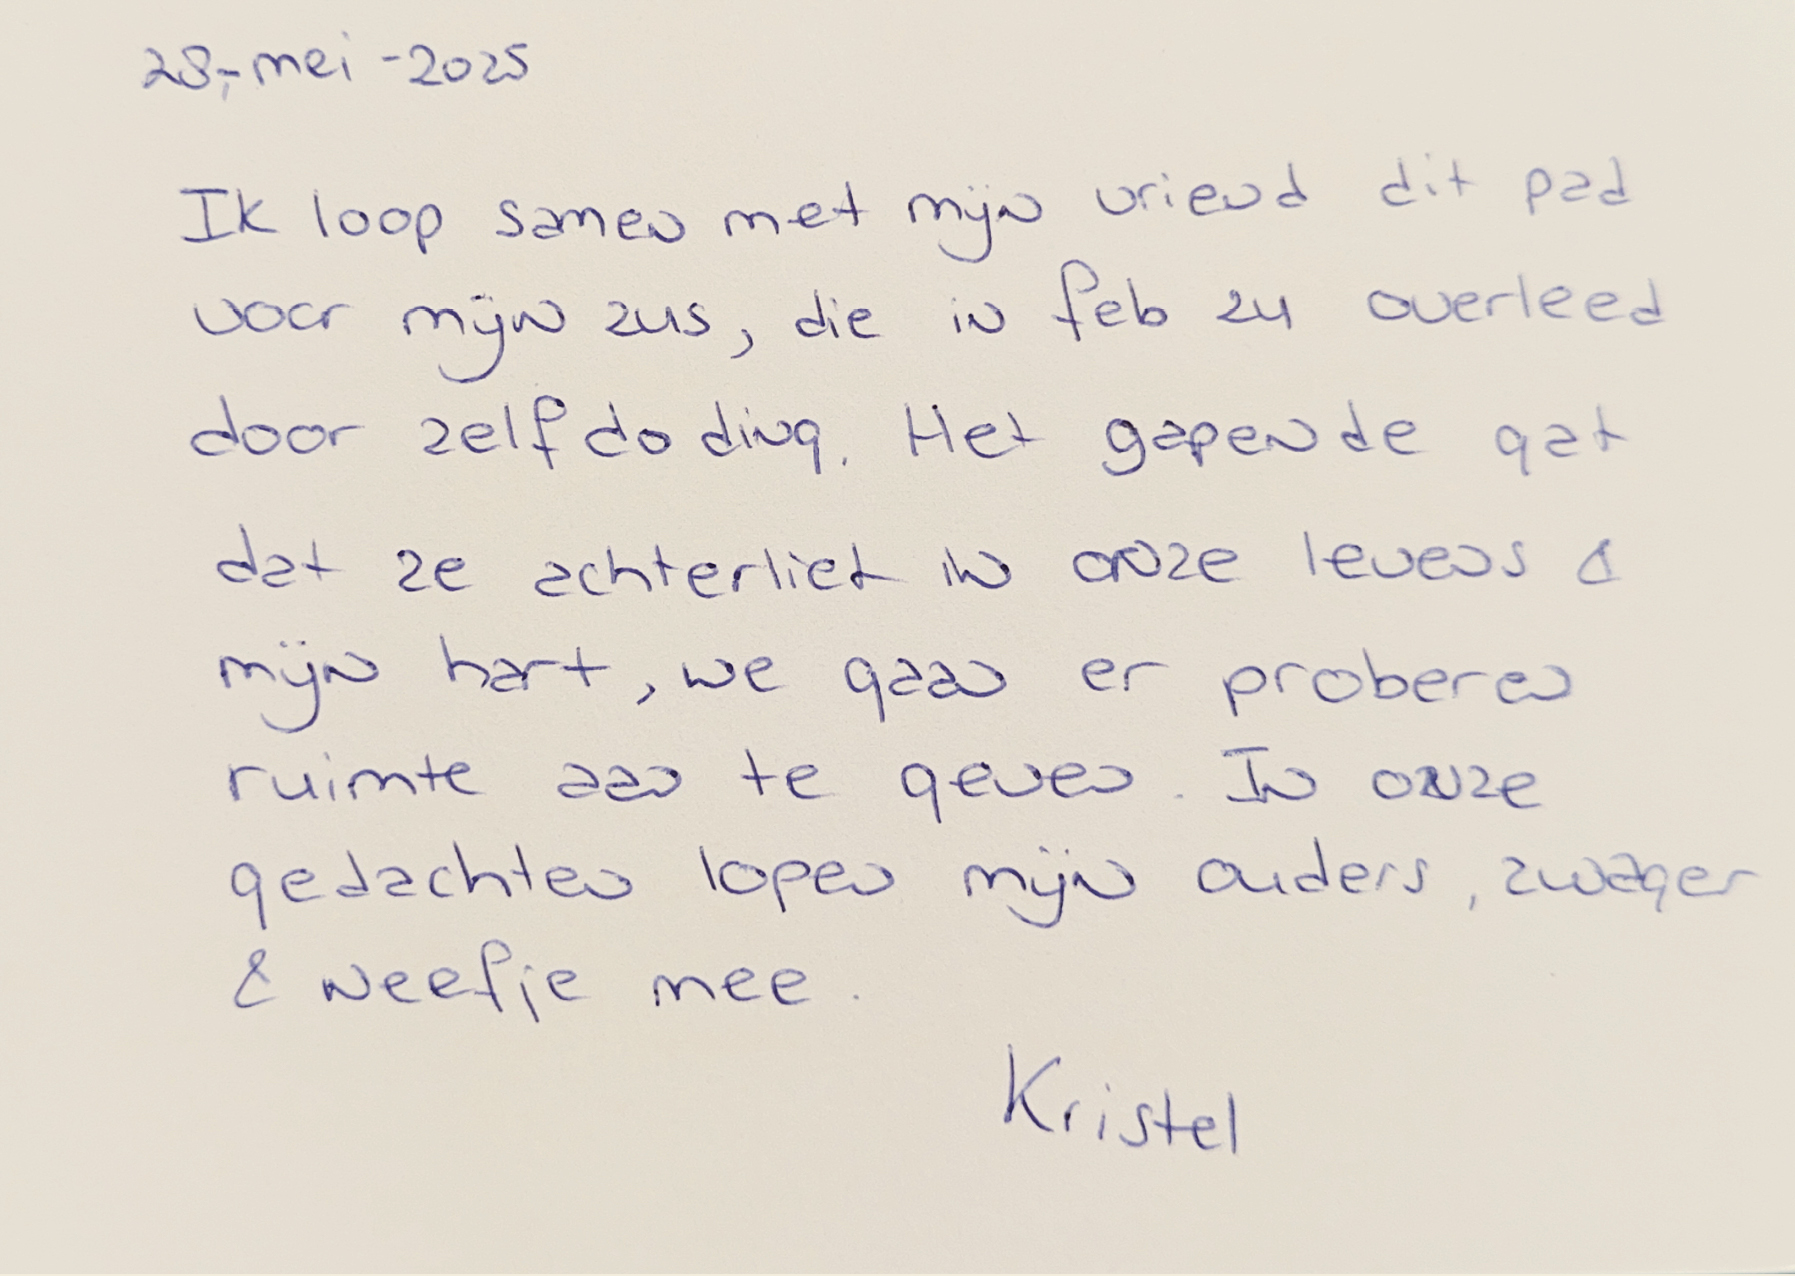 28-mei-2025
Ik loop samen met mijn vriend dit pad
voor mijn zus, die in feb 24 overleed
door zelfdoding. Het gapende gat
dat ze achterliet in onze levens &
mijn hart, we gaan er proberen
ruimte aan te geven. In onze
gedachten lopen mijn ouders, zwager
& neefje mee.
Kristel